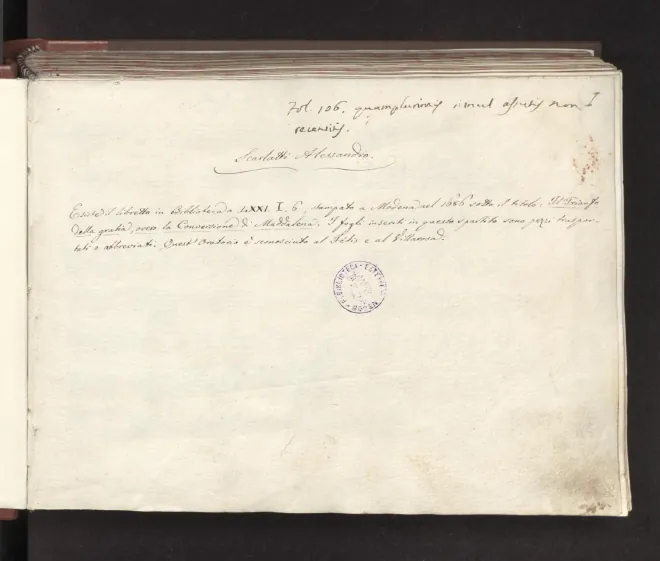 Fol. 106. quamplurimis simul assutis non I
recensitis.
Scarlatti Alessandro.
Esiste il libretto in Biblioteca a LXXI. I. 6, stampato a Modena nel 1686 sotto il titolo: Il Trionfo
della gratia, overo la Conversione di Maddalena. I fogli inseriti in questo spartito sono pezzi traspor-
tati o abbreviati. Quest'Oratorio è sconosciuto al Fétis e al Villarosa.
BIBLIOTECA ESTENSE
MODENA